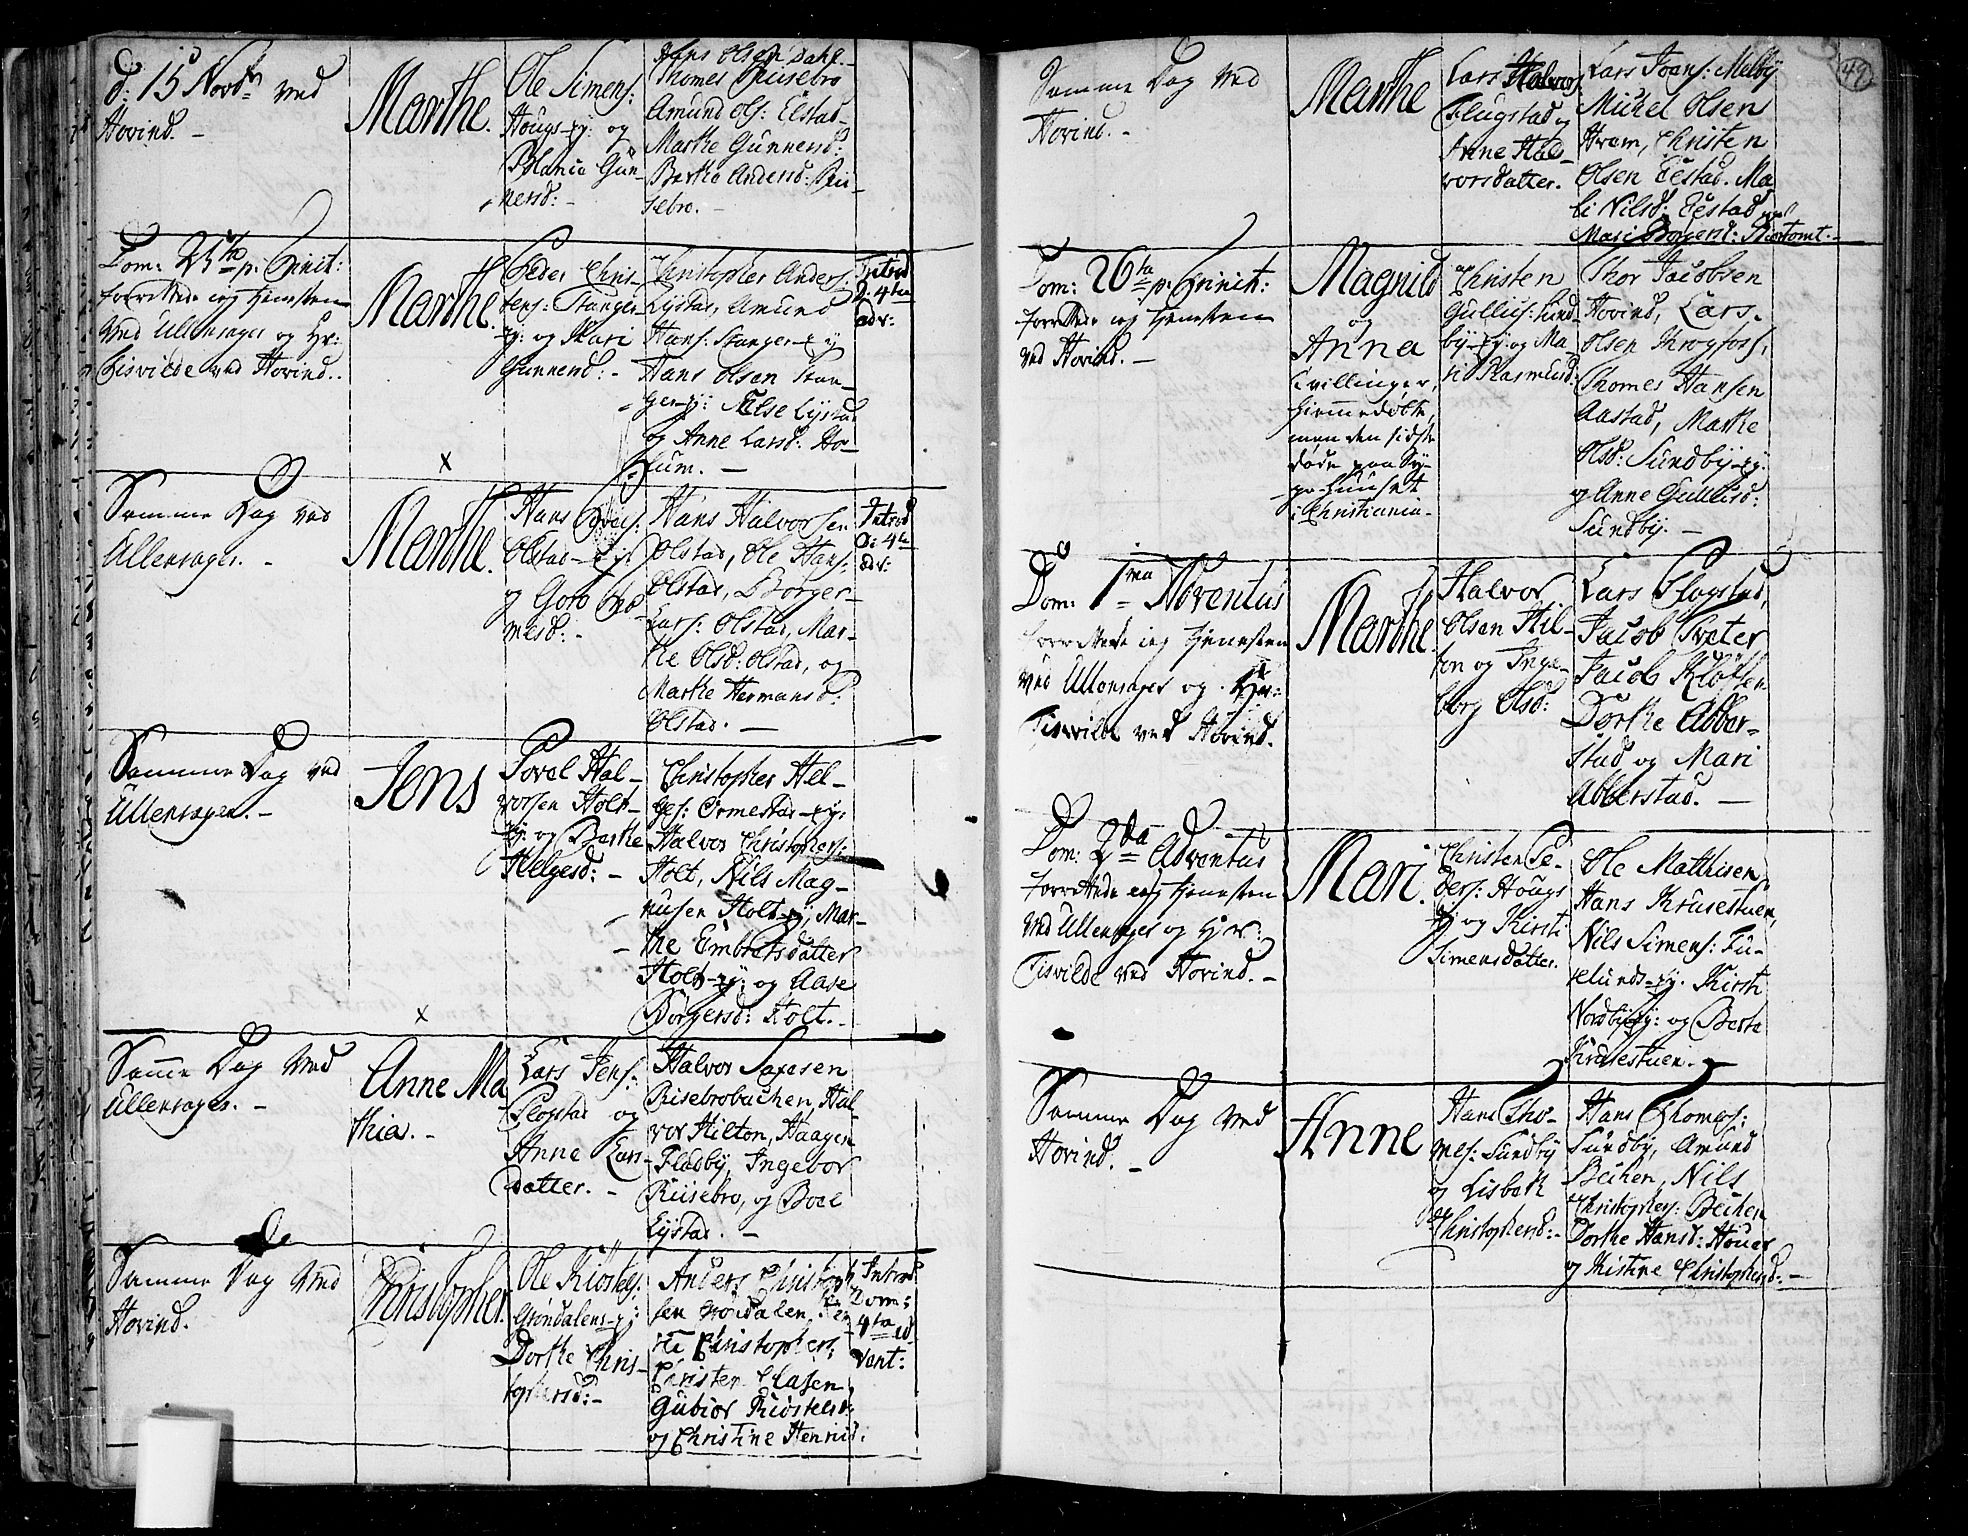 d: 15 Novbr ved
Hovind. -
Marthe.
Ole Simens:
Hougs-ey: og
Maria Gun-
nersd: -
Hans Olsen Dahl
Thomes Riisebro
Amund Ols: Eestad
Marthe Gunnersd:
Berthe Andersd: Rii-
sebro. -
Dom: 25ta p: Trinit:
forrettede ieg tjenesten
ved Ullensager og Hr:
Tisvilde ved Hovind.
Marthe.
Peder Chris-
tens: Stanger-
ey: og Kari
Gunnersd: -
Christopher Anders:
Lystad, Amund
Hans: Stanger-ey
Hans Olsen Stan-
ger-ey: Else Lystad
og Anne Larsd: Ho-
lum. -
Introd
D: 4ta
adv:
Samme Dag ved
Ullensager. -
x
Marthe.
Hans
Olstad-ey:
og Goro Tho-
mesd: -
Hans Halvorsen
Olstad, Ole Hans:
Olstad, Børger
Lars: Olstad, Mar-
the Olsd: Olstad, og
Marthe Hermansd:
Olstad. -
Introd
D: 4ta
adv:
Samme Dag ved
Ullensager. -
Jens
Povel Hal-
vorsen Holt-
ey: og Berthe
Helgesd: -
Christopher Hel-
ges: Ormestad-ey:
Halvor Christophers:
Holt, Nils Mag-
nusen Holt-ey, Mar-
the Embretsdatter
Holt-ey: og Aase
Børgersd: Holt. -
Samme Dag ved
Ullensager. -
x
Anne Ma
thia. -
Lars Jens:
Flogstad og
Anne Lars-
datter. -
Halvor Saxesen
Risebrobachen, Hal-
vor Hilton, Haagen
Fladby, Ingebor
Riisebro, og Boel
Lystad. -
Samme Dag ved
Hovind.
Christopher.
Ole Kiøstels:
Grøndalens-ey:
Dorthe Chris-
tophersd: -
Anders Christoph
sen Grøndalen,
Christophers:
Christen Clasen
Gubiør Kiøstelsd:
og Christine Henrid:
Introd
Dom:
4ta ad
vent:
49
Samme Dag ved
Hovind. -
Marthe
Lars Halvors
Flugstad og
Anne Hal-
vorsdatter.
Lars Joans: Melby
Michel Olsen
Hram, Christen
Olsen Eestad. Ma
li Nilsd: Eestad og
Mari Børgersd: Biørtomt. -
Dom: 26ta p: Trinit:
forrettede ieg tjenesten
ved Hovind. -
Magnild
og
Anna
Tvillinger,
hiemmedøbte,
men den sidste
døde paa Sy-
ge huuset
i Christiania.
Christen
Gullics: Sund-
by-ey: og Ma
ri Rasmusd:
Thor Jacobsen
Hovind, Lars
Olsen Krogfoss,
Thomes Hansen
Aastad, Marthe
Olsd: Sundby-ey:
og Anne Gullicsd:
Sundby. -
Dom: 1ma Adventus
forrettede ieg tjenesten
ved Ullensager og Hr:
Tisvilde ved Hovind.
Marthe.
Halvor
Olsen Hil-
ton og Inge-
borg Olsd:
Lars Flogstad,
Jacob Tveter
Jacob Kløften
Dorthe Abber-
stad og Mari
Abberstad. -
Dom: 2da Adventus
forrettede ieg tjenesten
ved Ullensager og Hr:
Tisvilde ved Hovind. -
Mari.
Christen Pe-
ders: Hougs
ey: og Kirsti
Simensdatter.
Ole Mathisen,
Hans Krusestuen,
Nils Simens: Fu-
relunds-ey. Kirsti
Nordbyey: og Berte
Krusestuen. -
Samme Dag ved
Hovind. -
Anne
Hans Tho-
mes: Sundby
og Lisbeth
Christophersd: -
Hans Thomes:
Sundby, Amund
Bechen, Nils
Christophers: Bechen
Dorthe Hansd: Houer
og Kistine Christophersd: -